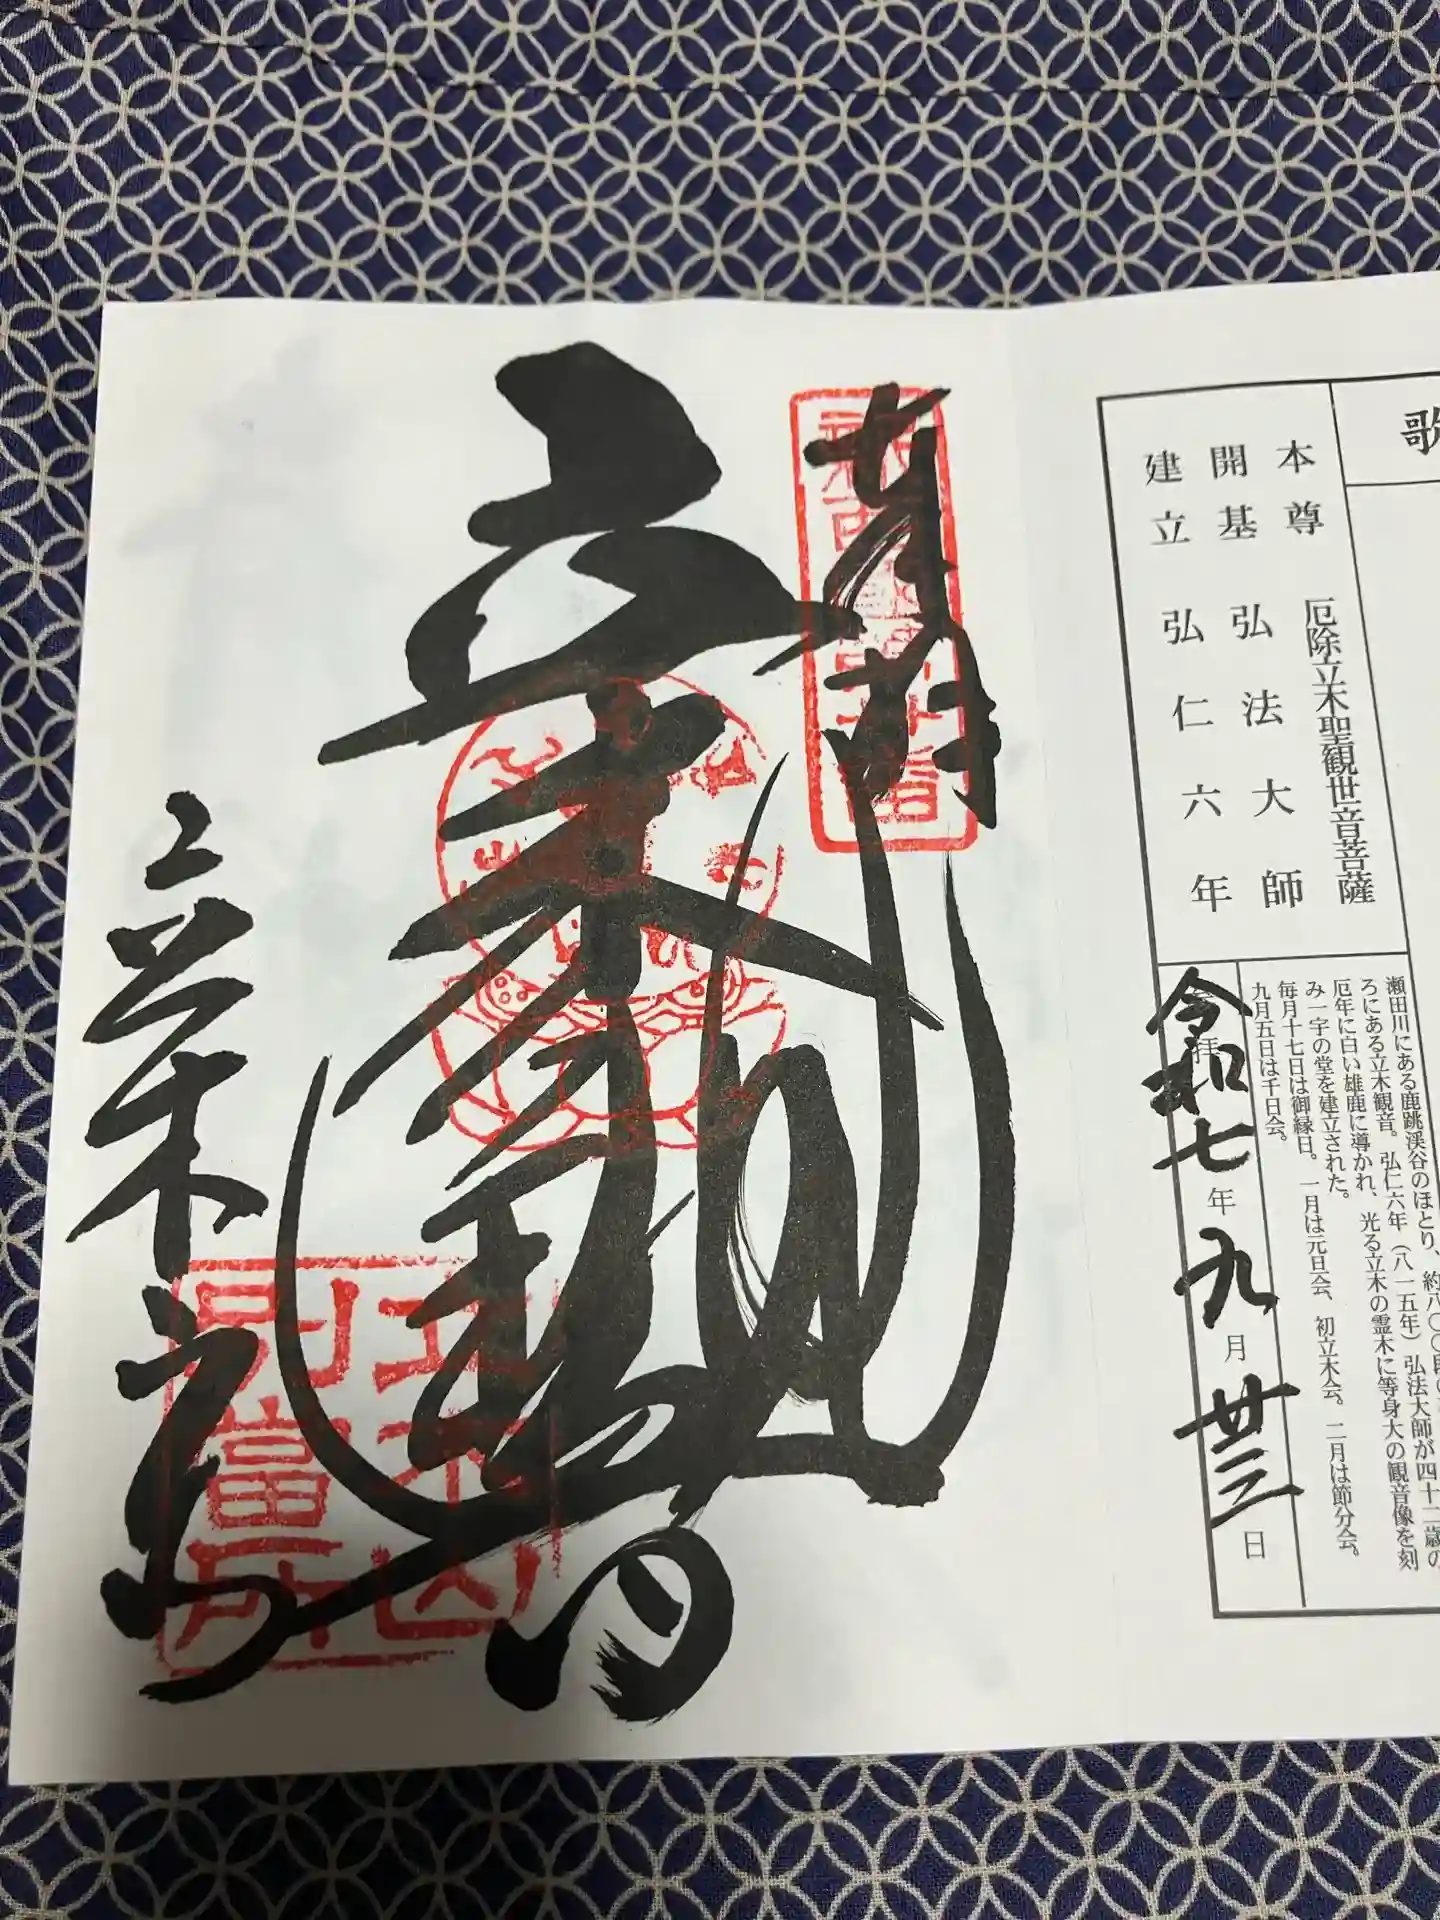 歌
本尊 厄除立木聖観世音菩薩
開基 弘法大師
建立 弘仁六年
瀬田川にある鹿跳渓谷のほとり、約八〇〇段の
ろにある立木観音。弘仁六年(八一五年)弘法大師が四十二歳の
厄年に白い雄鹿に導かれ、光る立木の霊木に等身大の観音像を刻
み一宇の堂を建立された。
毎月十七日は御縁日。一月は元旦会、初立木会。二月は節分会。
九月五日は千日会。
拝
令和七年九月廿三日
奉拝
立木聖観音
立木山寺